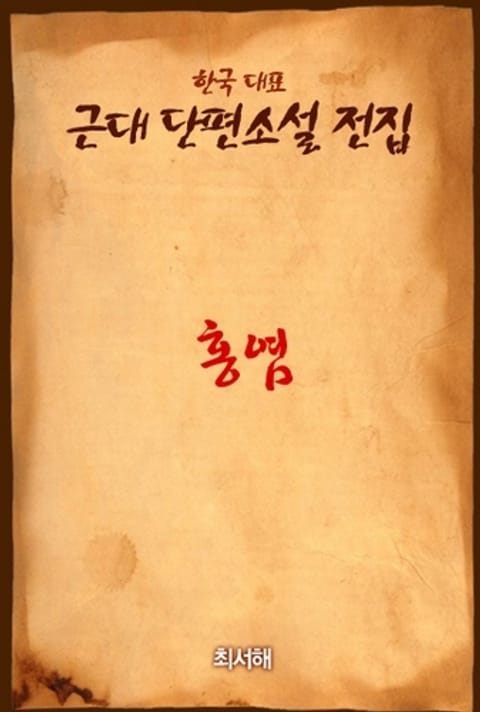 한국 대표
근대 단편소설 전집
홍염
최서해